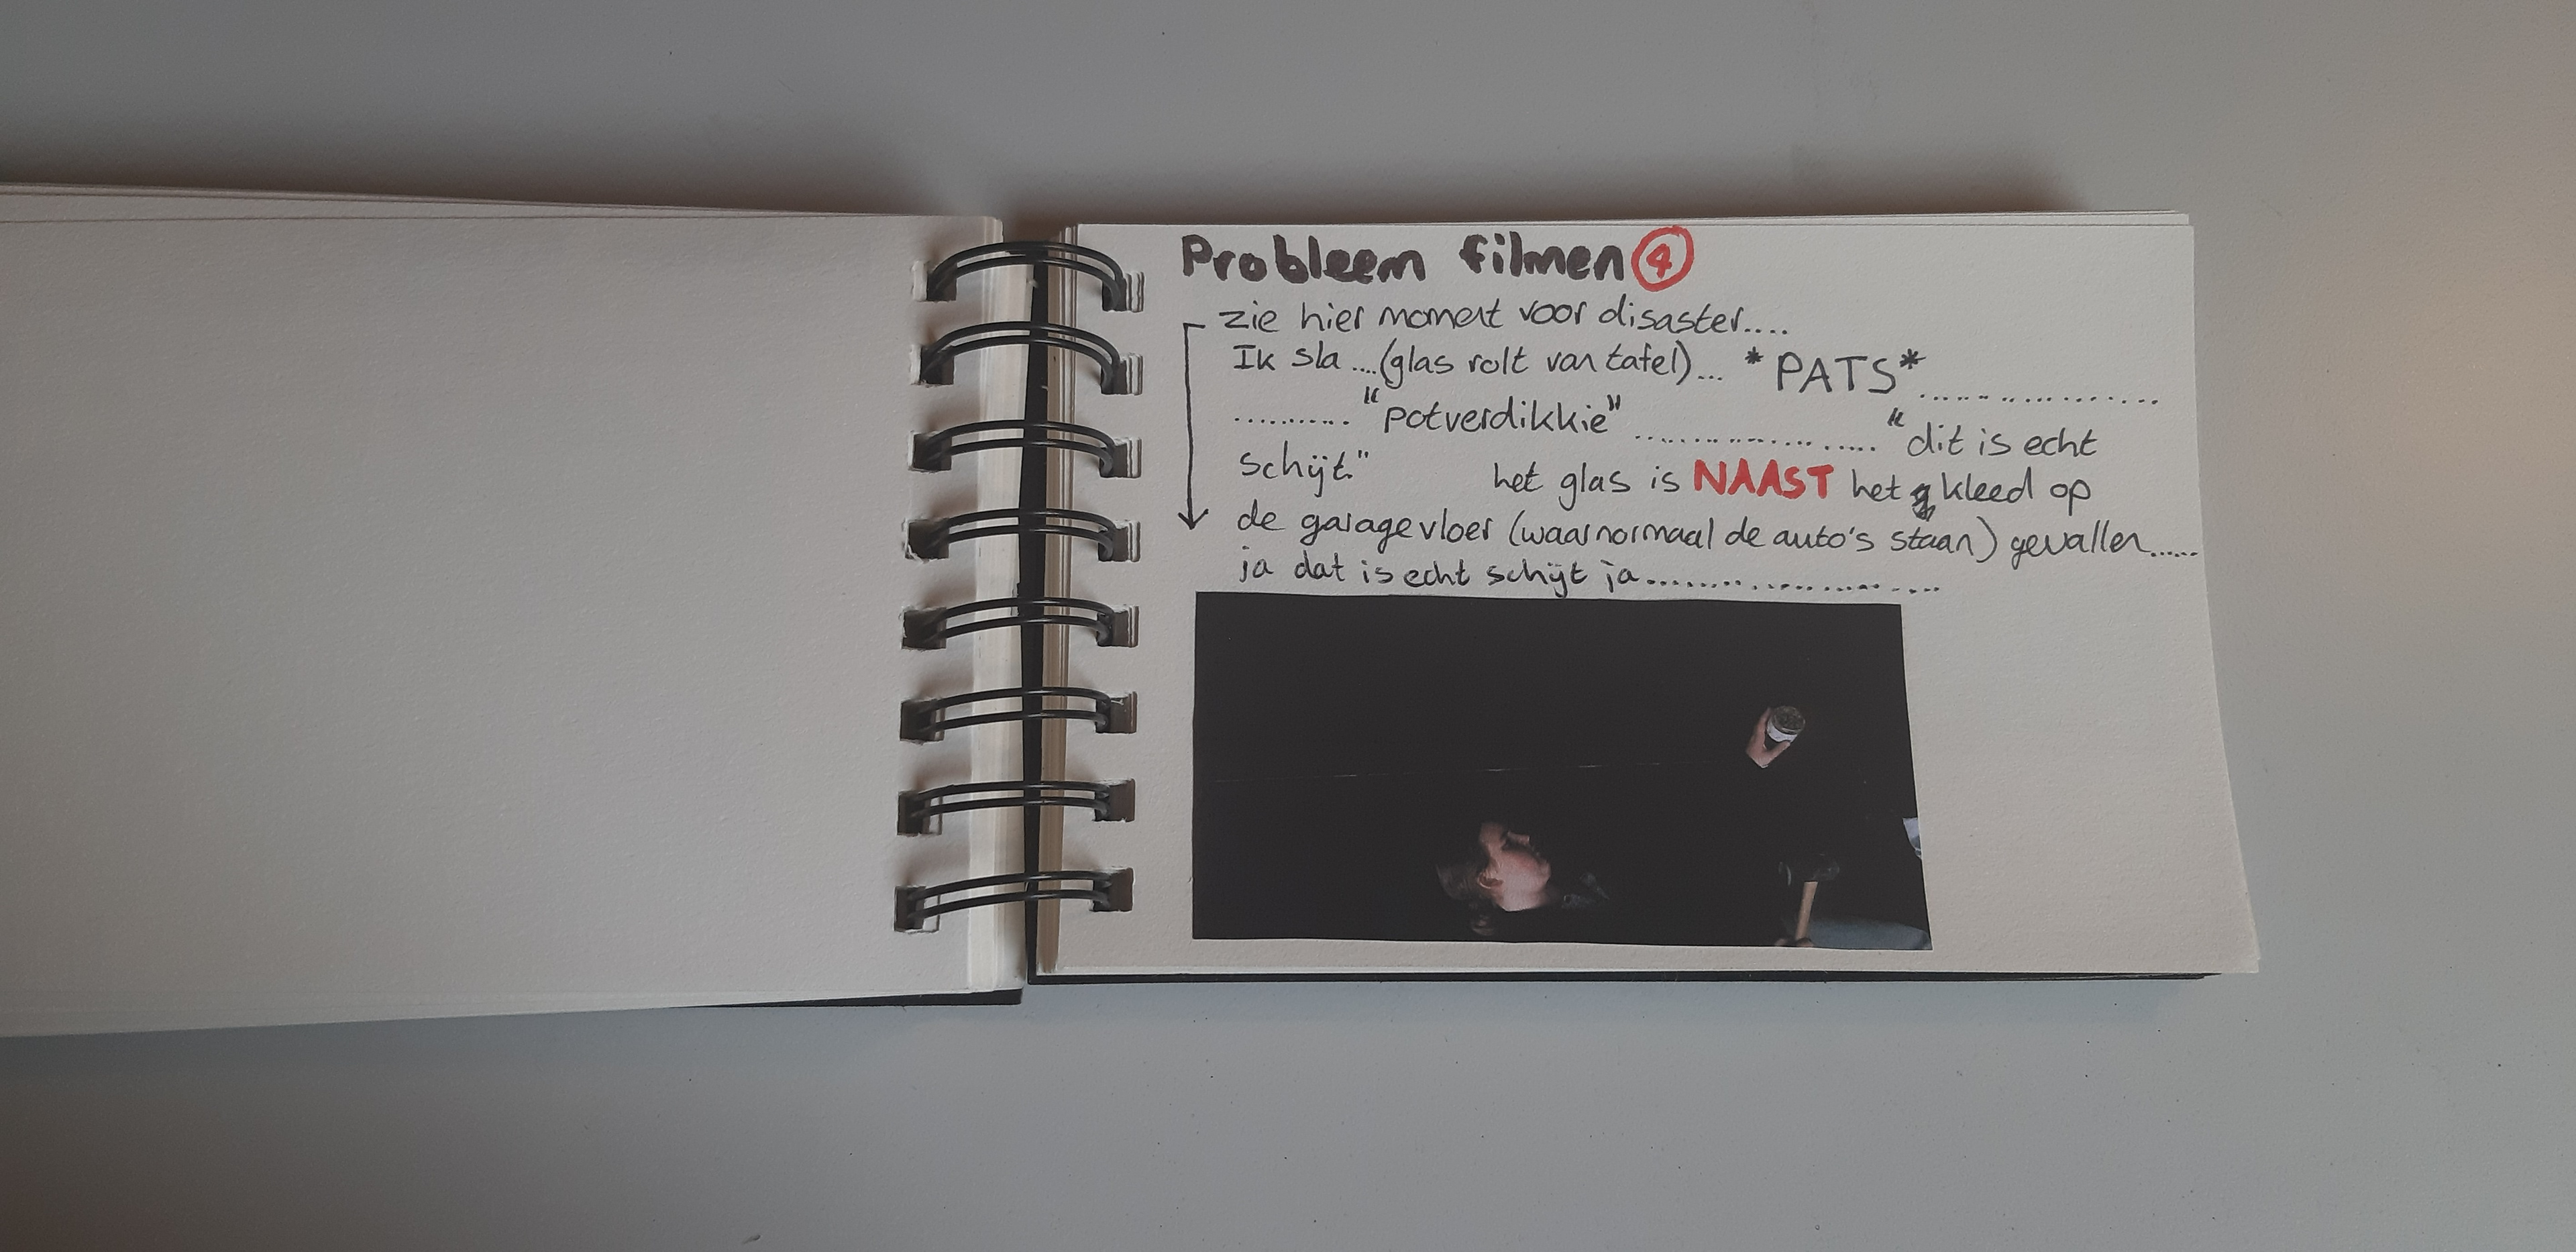 Probleem filmen 4
zie hier moment voor disaster....
Ik sla ....(glas rolt van tafel)... *PATS*..................
.......... "potverdikkie" ..................... "dit is echt
schijt." het glas is NAAST het kleed op
de garagevloer (waar normaal de auto's staan) gevallen......
ja dat is echt schijt ja......................